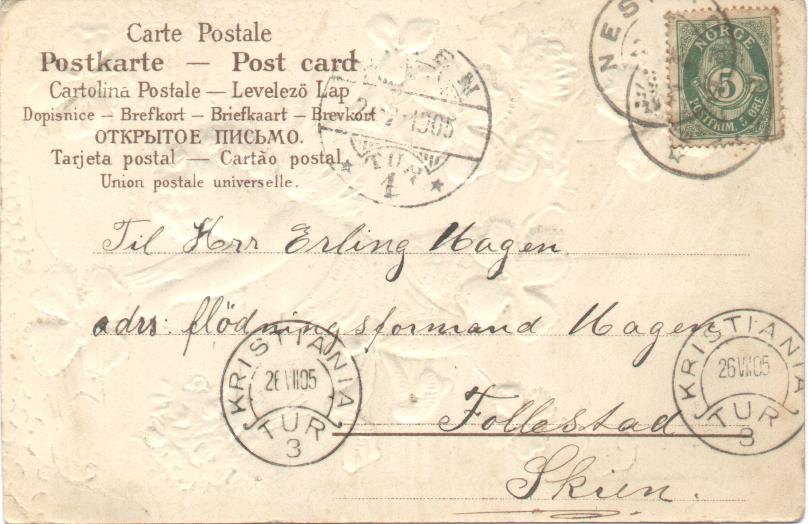 Carte Postale
Postkarte — Post card
Cartolina Postale — Levelező Lap
Dopisnice — Brefkort — Briefkaart — Brevkort
ОТКРЫТОЕ ПИСЬМО.
Tarjeta postal — Cartão postal
Union postale universelle.
1905
TUR
1
NORGE
5
POSTFRIM. 5 ØRE
Til Herr Erling Hagen
adrs: flödningsformand Hagen
KRISTIANIA
26 VII 05
TUR
3
KRISTIANIA
26 VII 05
TUR
3
Follestad
Skien.